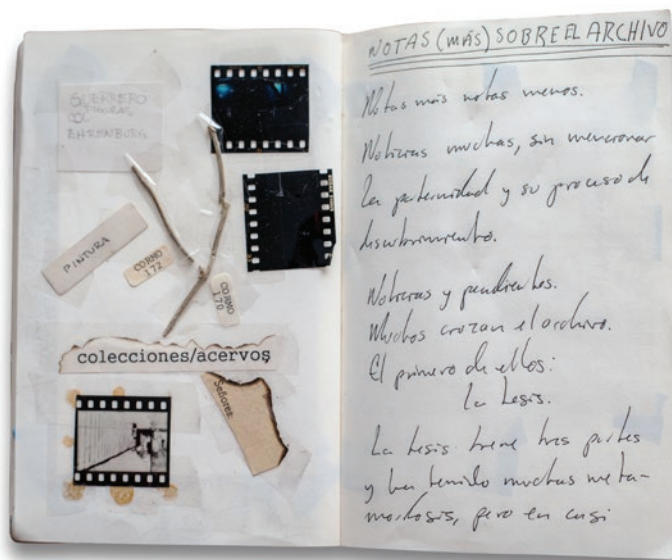 GUERRERO
FIGURAS
COL
EHRENBURG
PINTURA
CORMO
172
CORMO
170
colecciones/acervos
Señores:
NOTAS (MÁS) SOBRE EL ARCHIVO
Notas más notas menos.
Noticias muchas, sin mencionar
la paternidad y su proceso de
descubrimiento.
Noticias y pendientes.
Muchos cruzan el archivo.
El primero de ellos:
la tesis.
La tesis tiene tres partes
y ha tenido muchas meta-
morfosis, pero en casi